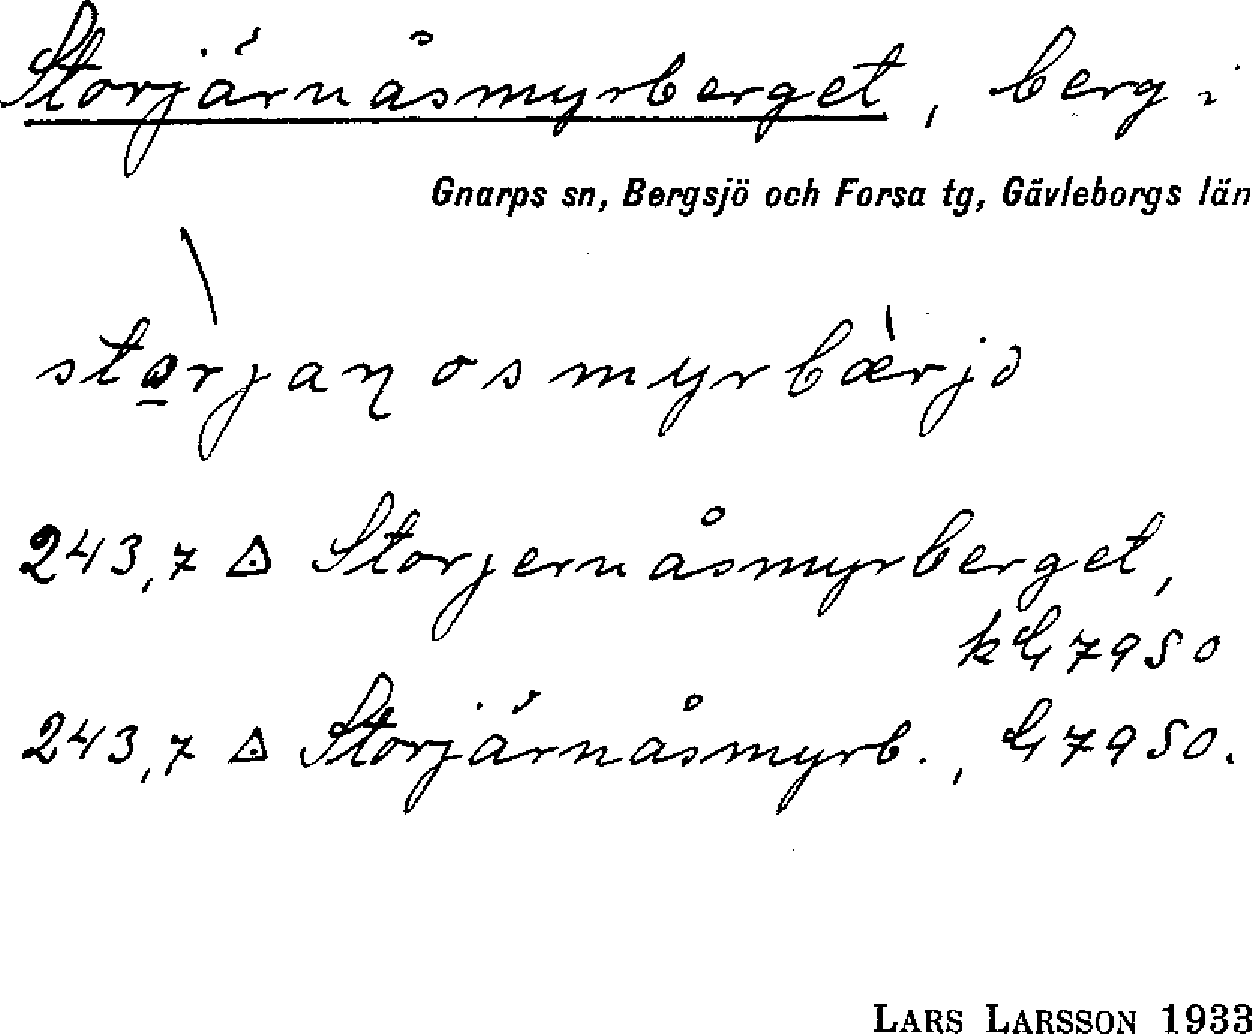 Storjärnåsmyrberget, berg i
Gnarps sn, Bergsjö och Forsa tg, Gävleborgs län
sto̲rjaɳosmyrbærjə
243,7 △ Storjernåsmyrberget,
kG 7950
243,7 △ Storjärnåsmyrb., G 7950.
LARS LARSSON 1933